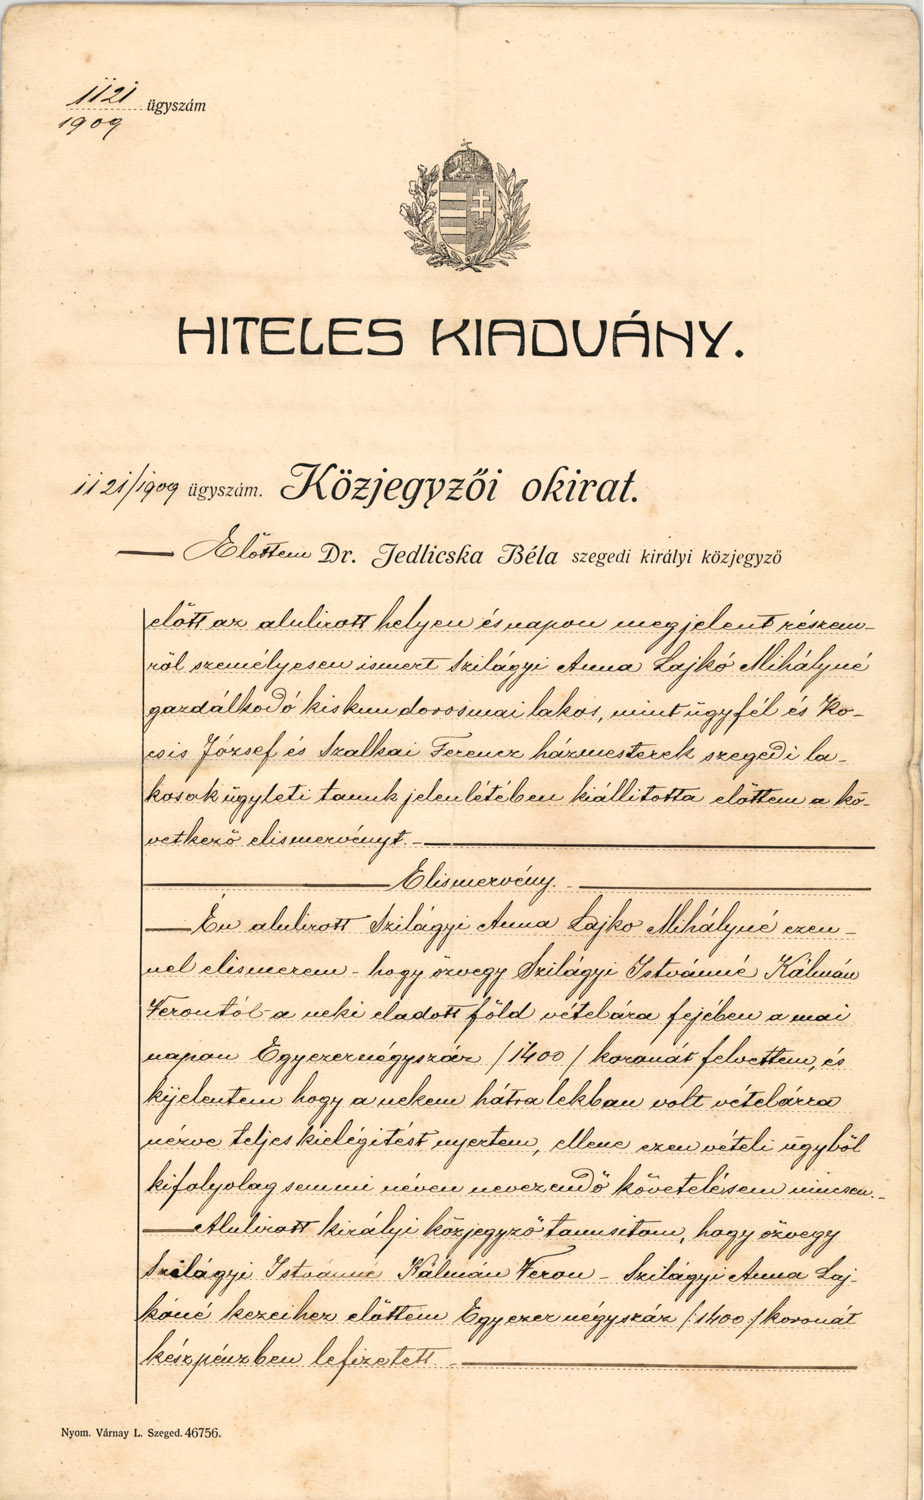 1121 ügyszám
1909
HITELES KIADVÁNY.
1121/1909 ügyszám. Közjegyzői okirat.
— Előttem Dr. Jedlicska Béla szegedi királyi közjegyző
előtt az alulirott helyen és napon megjelent részem-
ről személyesen ismert Szilágyi Anna Lajkó Mihályné
gazdálkodó kiskundorosmai lakos, mint ügyfél és Ko-
csis József és Szalkai Ferencz házmesterek szegedi la-
kosok ügyleti tanuk jelenlétében kiállitotta előttem a kö-
vetkező elismervényt. —
— Elismervény. —
— Én alulirott Szilágyi Anna Lajko Mihályné ezen-
nel elismerem - hogy özvegy Szilágyi Istvánné Kálmán
Verontól - a neki eladott föld vételára fejében a mai
napon Egyezernégyszáz /1400/ koronát felvettem, és
kijelentem hogy a nekem hátralékban volt vételárra
nézve teljes kielégitést nyertem, ellene ezen vételi ügyből
kifolyolag semmi néven nevezendő követelésem nincsen. -
— Alulirott királyi közjegyző tanusitom, hogy özvegy
Szilágyi Istvánné Kálmán Veron - Szilágyi Anna Laj-
kóné kezeihez előttem Egyezernégyszáz /:1400:/ koronát
készpénzben lefizetett. —
Nyom. Várnay L. Szeged. 46756.